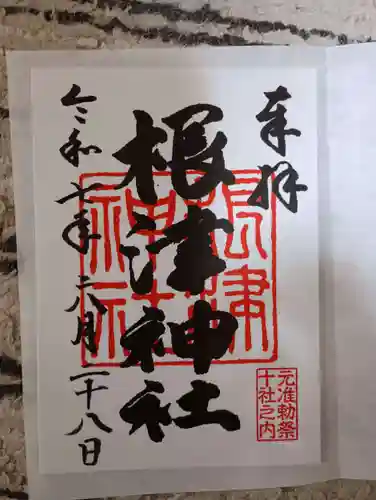 奉拝
根津神社
令和七年六月二十八日
根津神社
元准勅祭
十社之内